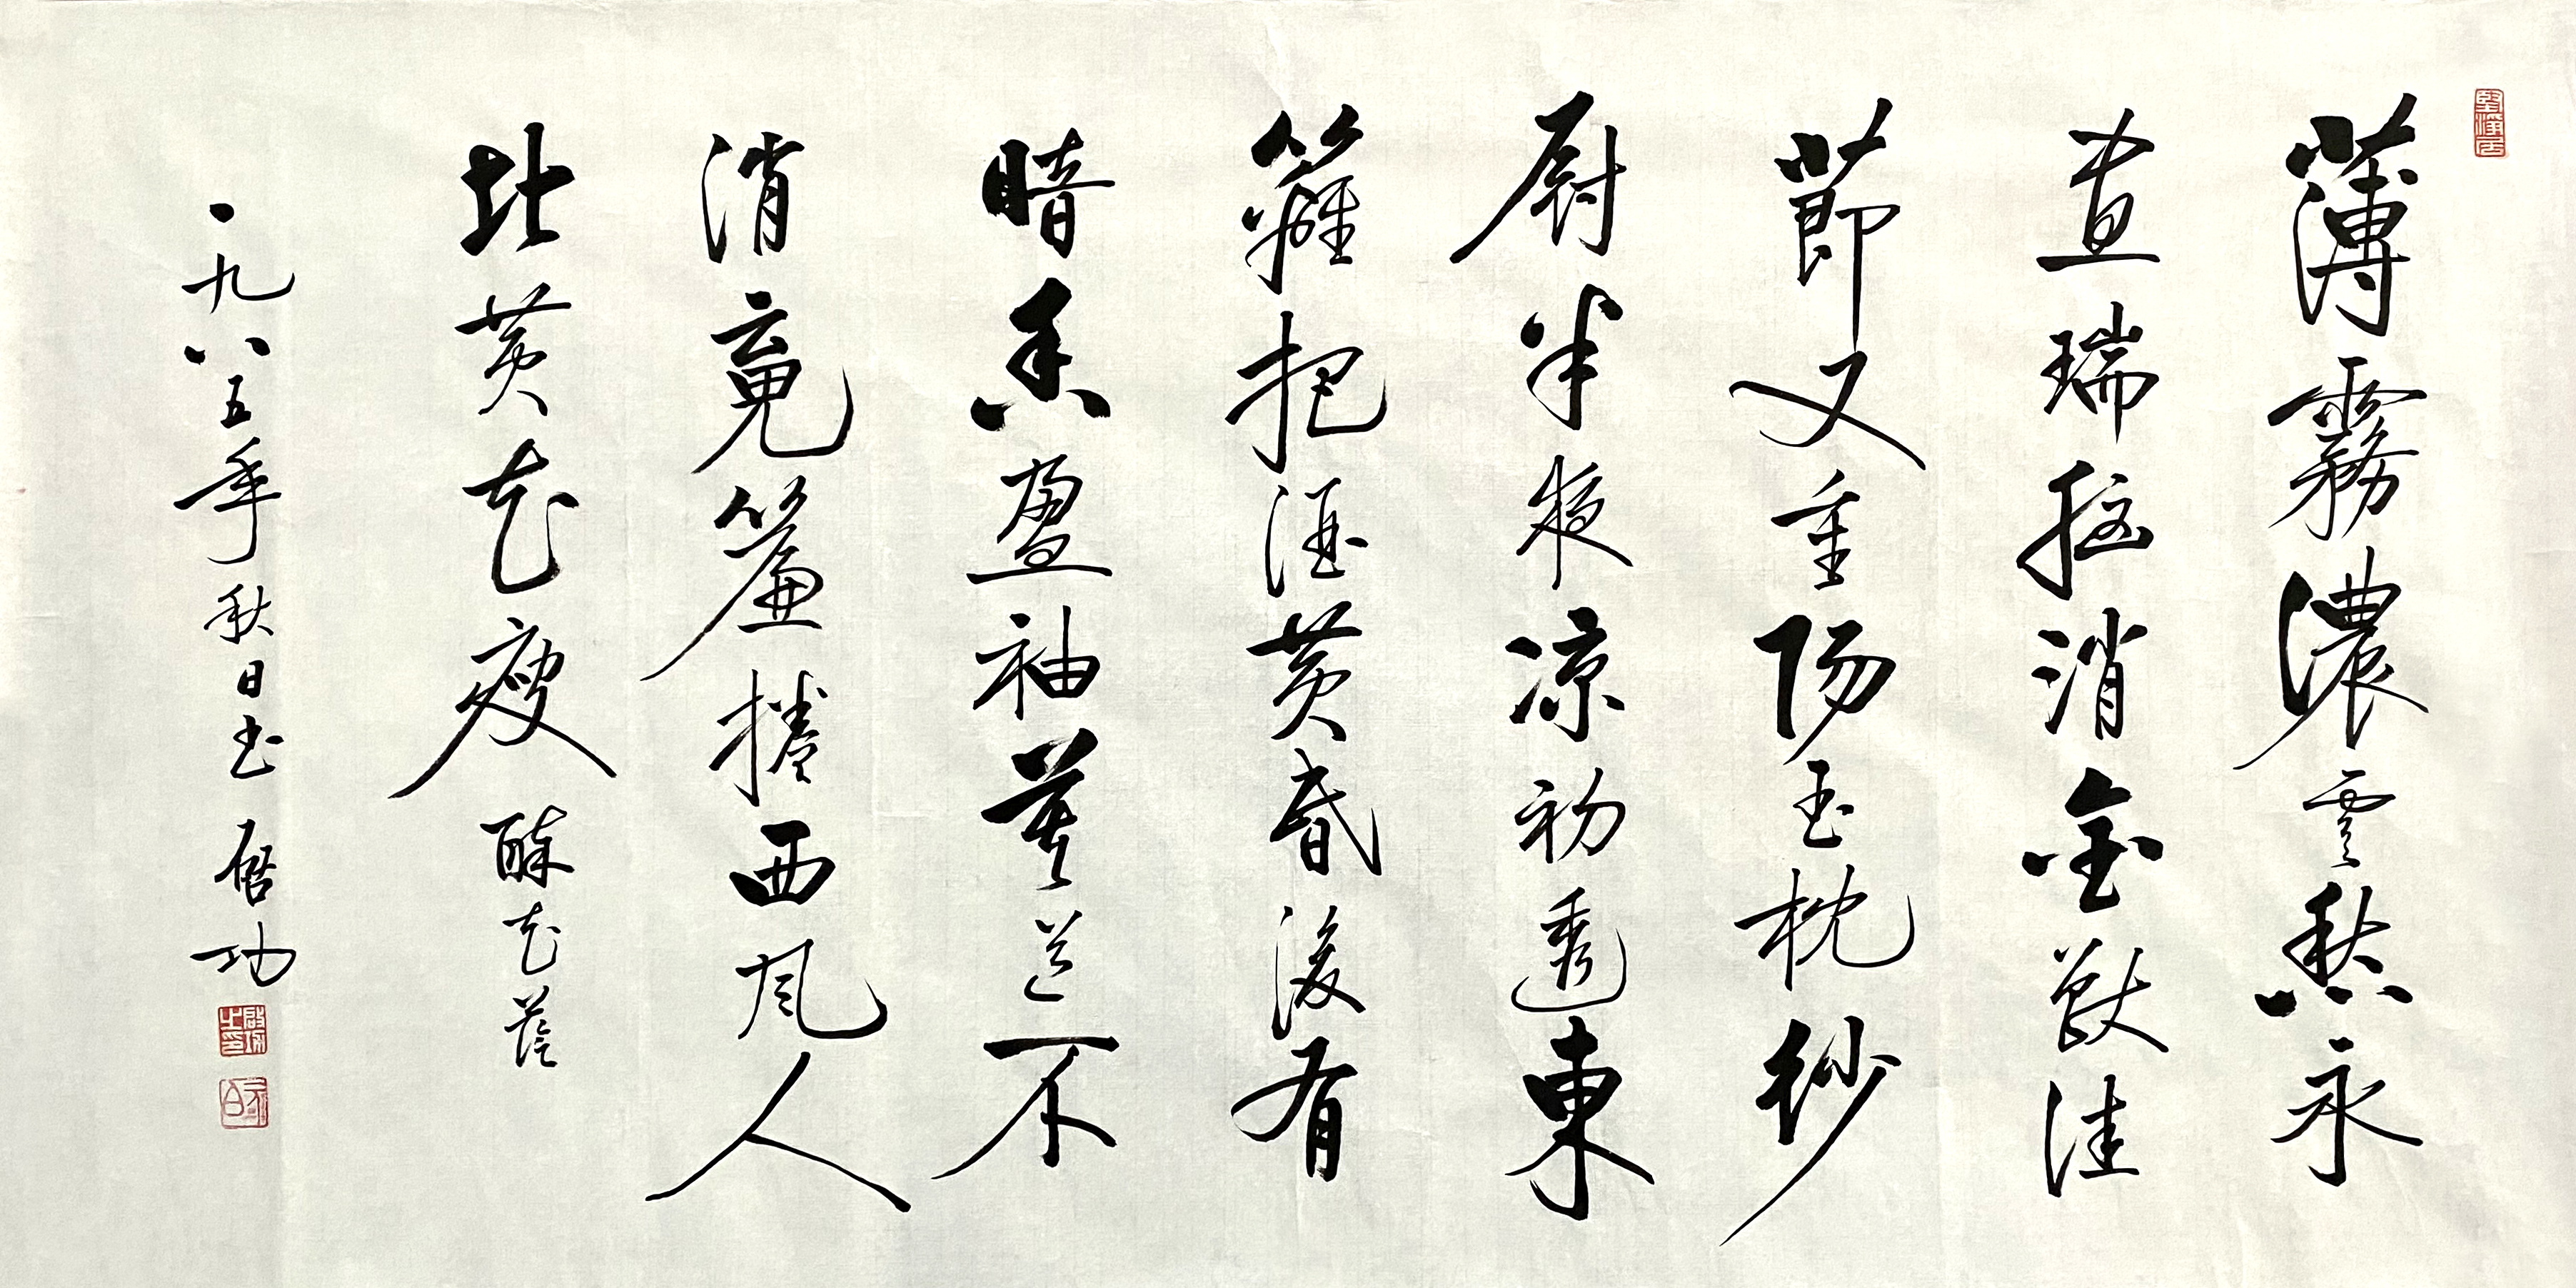 堅淨居
薄霧濃雲愁永
晝瑞腦消金獸佳
節又重陽玉枕紗
厨半夜凉初透東
籬把酒黃昏後有
暗香盈袖莫道不
消魂簾捲西風人
比黃花瘦 醉花蔭
一九八五年秋日书 启功
啟功之印
元白